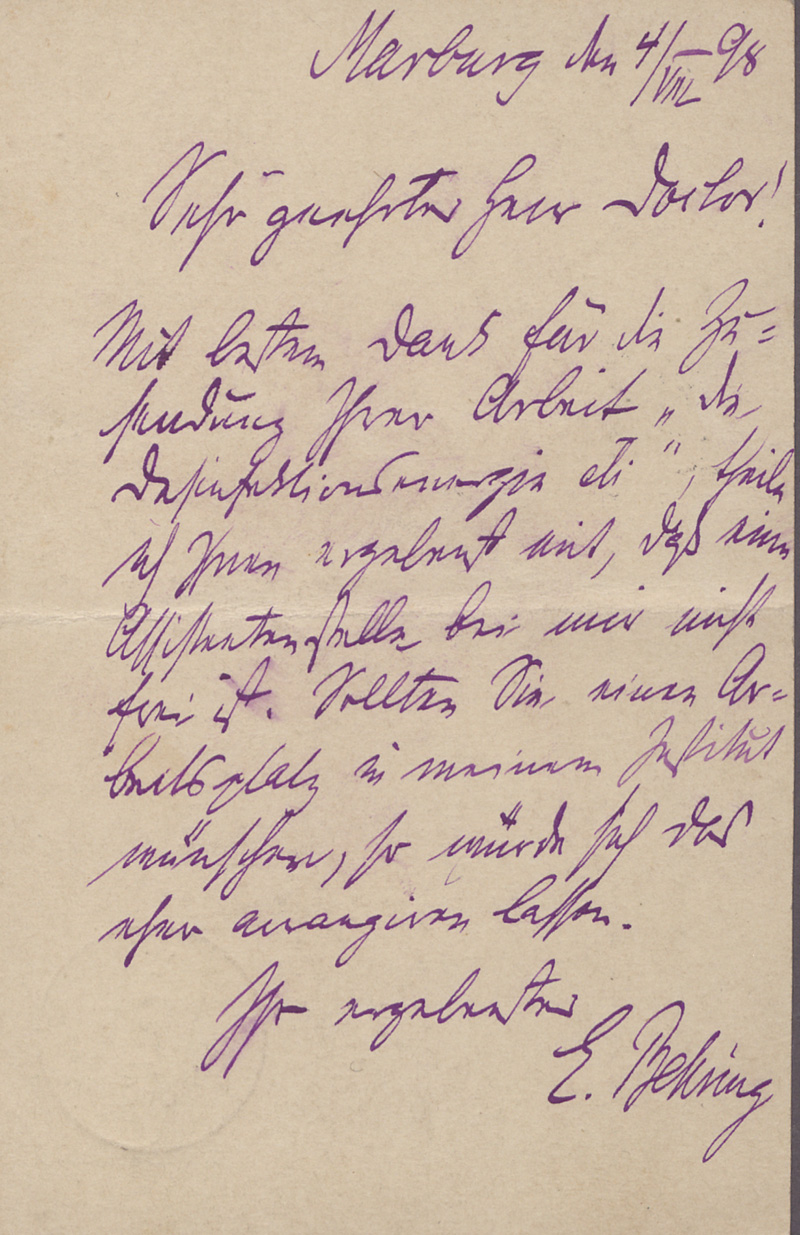 Marburg den 4/VIII 98
Sehr geehrter Herr Doctor!
Mit bestem Dank für die Zu=
sendung Ihrer Arbeit „die
Desinfektionsenergie etc“, theile
ich Ihnen ergebenst mit, daß eine
Assistentenstelle bei mir nicht
frei ist. Sollten Sie einen Ar=
beitsplatz in meinem Institut
wünschen, so würde sich das
eher arrangiren lassen.
Ihr ergebenster
E. Behring